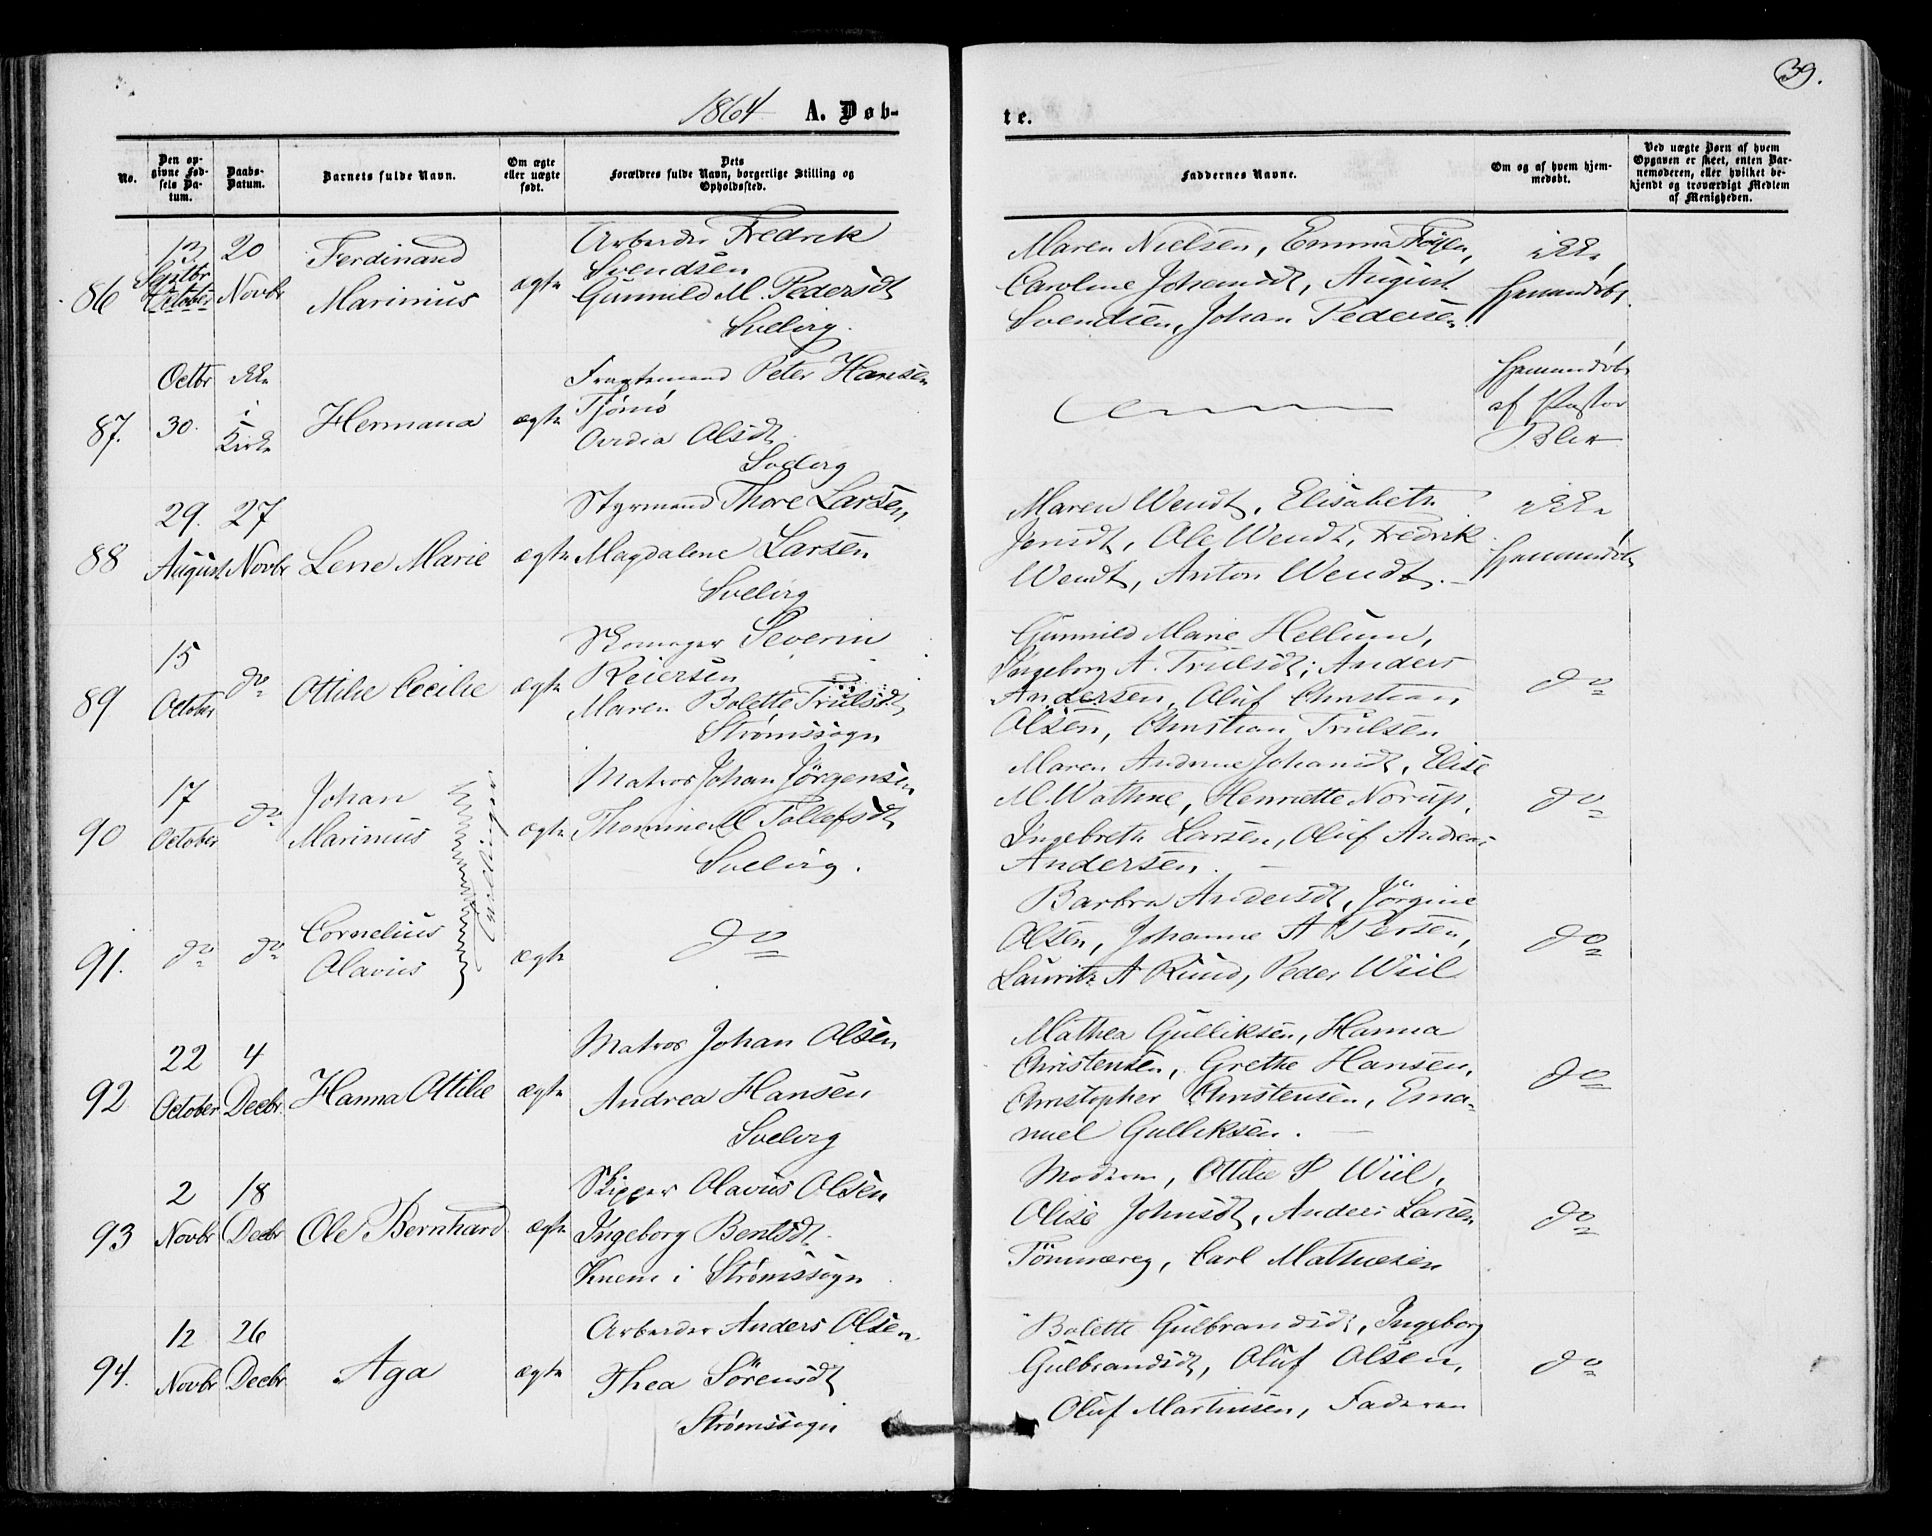 1864 A. Døb-
te.
39.
No.
Den op-
givne Fød-
sels Da-
tum.
Daabs-
Datum.
Barnets fulde Navn.
Om ægte
eller uægte
født.
Dets
Forældres fulde Navn, borgerlige Stilling og
Opholdssted.
Faddernes Navne.
Om og af hvem hjem-
medøbt.
Ved uægte Børn af hvem
Opgaven er skeet, enten Bar-
nemoderen, eller hvilket be-
kjendt og troværdigt Medlem
af Menigheden.
86
13
Septbr
October
20
Novbr
Ferdinand
Marinius
ægte
Arbeider Fredrik
Svendsen
Gunnild M. Pedersdt
Svelvig.
Maren Nielsen, Emma
Caroline Johansdt, August
Svendsen, Johan Pedersen
ikke
hjemmedøbt.
87.
Octbr
30.
ikke
i
Kirke
Hermana
ægte
Fragtemand Peter Hansen
Tjømø
Ovidia Olsdt
Svelvig
hjemmedøbt
af Pastor
Blix
88
29.
August
27
Novbr
Lene Marie
ægte
Styrmand Thore Larsen
Magdalene Larsen
Svelvig
Maren Wendt, Elisabeth
Jonsdt, Ole Wendt, Fredrik
Wendt, Anton Wendt.
ikke
hjemmedøbt
89
15
October
do
Ottilie Cecilie
ægte
Skomager Severin
Reiersen
Maren Bolette Trulsdt
Strømssogn
Gunnild Marie Hellum,
Ingeborg A. Trulsdt, Anders
Andersen, Oluf Christian
Olsen, Christian Trulsen
do
90
17
October
do
Johan
Marinius
Tvillinger
ægte
Matros Johan Jörgensen
Thomine M Tollefsdt
Svelvig.
Maren Andrine Johansdt, Elise
M. Wathne, Henriette Norup,
Ingebreth Larsen, Oluf Andreas
Andersen.
do
91.
do
do
Cornelius
Olavius
ægte
do
Barbra Andersdt, Jörgine
Olsen, Johanne A Persen,
Lauritz A Rund, Peder Wiil
do
92
22
October
4
Decbr
Hanna Ottilie
ægte
Matros Johan Olsen
Andrea Hansen
Svelvig
Mathea Gulliksen, Hanna
Christensen, Grethe Hansen,
Christopher Christensen, Ema-
nuel Gulliksen.
do
93
2
Novbr
18
Decbr
Ole Bernhard
ægte
Skipper Olavus Olsen
Ingeborg Bentsdt
Knem i Strømssogn
Moderen, Ottilie S Wiil,
Olise Johnsdt, Anders Larsen
Tömmereg, Carl Mathiesen
do
94.
12
Novbr
26
Decbr
Aga
ægte
Arbeider Anders Olsen
Thea Sörensdt
Strømssogn
Bolette Gulbrandsdt, Ingeborg
Gulbrandsdt, Oluf Olsen,
Oluf Martinsen, Faderen
do